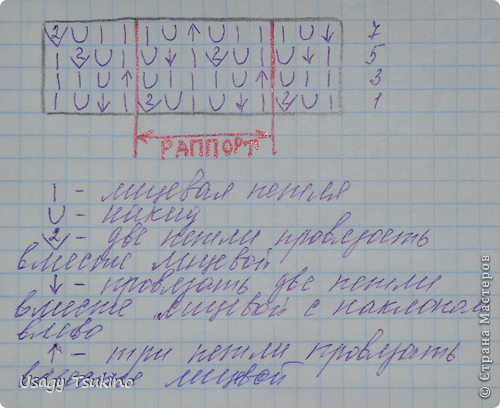 2 U | | | U ↑ U | | | U ↓ 7
| 2 U | U ↓ | 2 U | U ↓ | 5
| | U ↑ U | | | U ↑ U | | 3
| U ↓ | 2 U | U ↓ | 2 U | 1
РАППОРТ
| - лицевая петля
U - накид
2 - две петли провязать
вместе лицевой
↓ - провязать две петли
вместе лицевой с наклоном
влево
↑ - три петли провязать
вместе лицевой
Usagy Tsukino
© Страна Мастеров